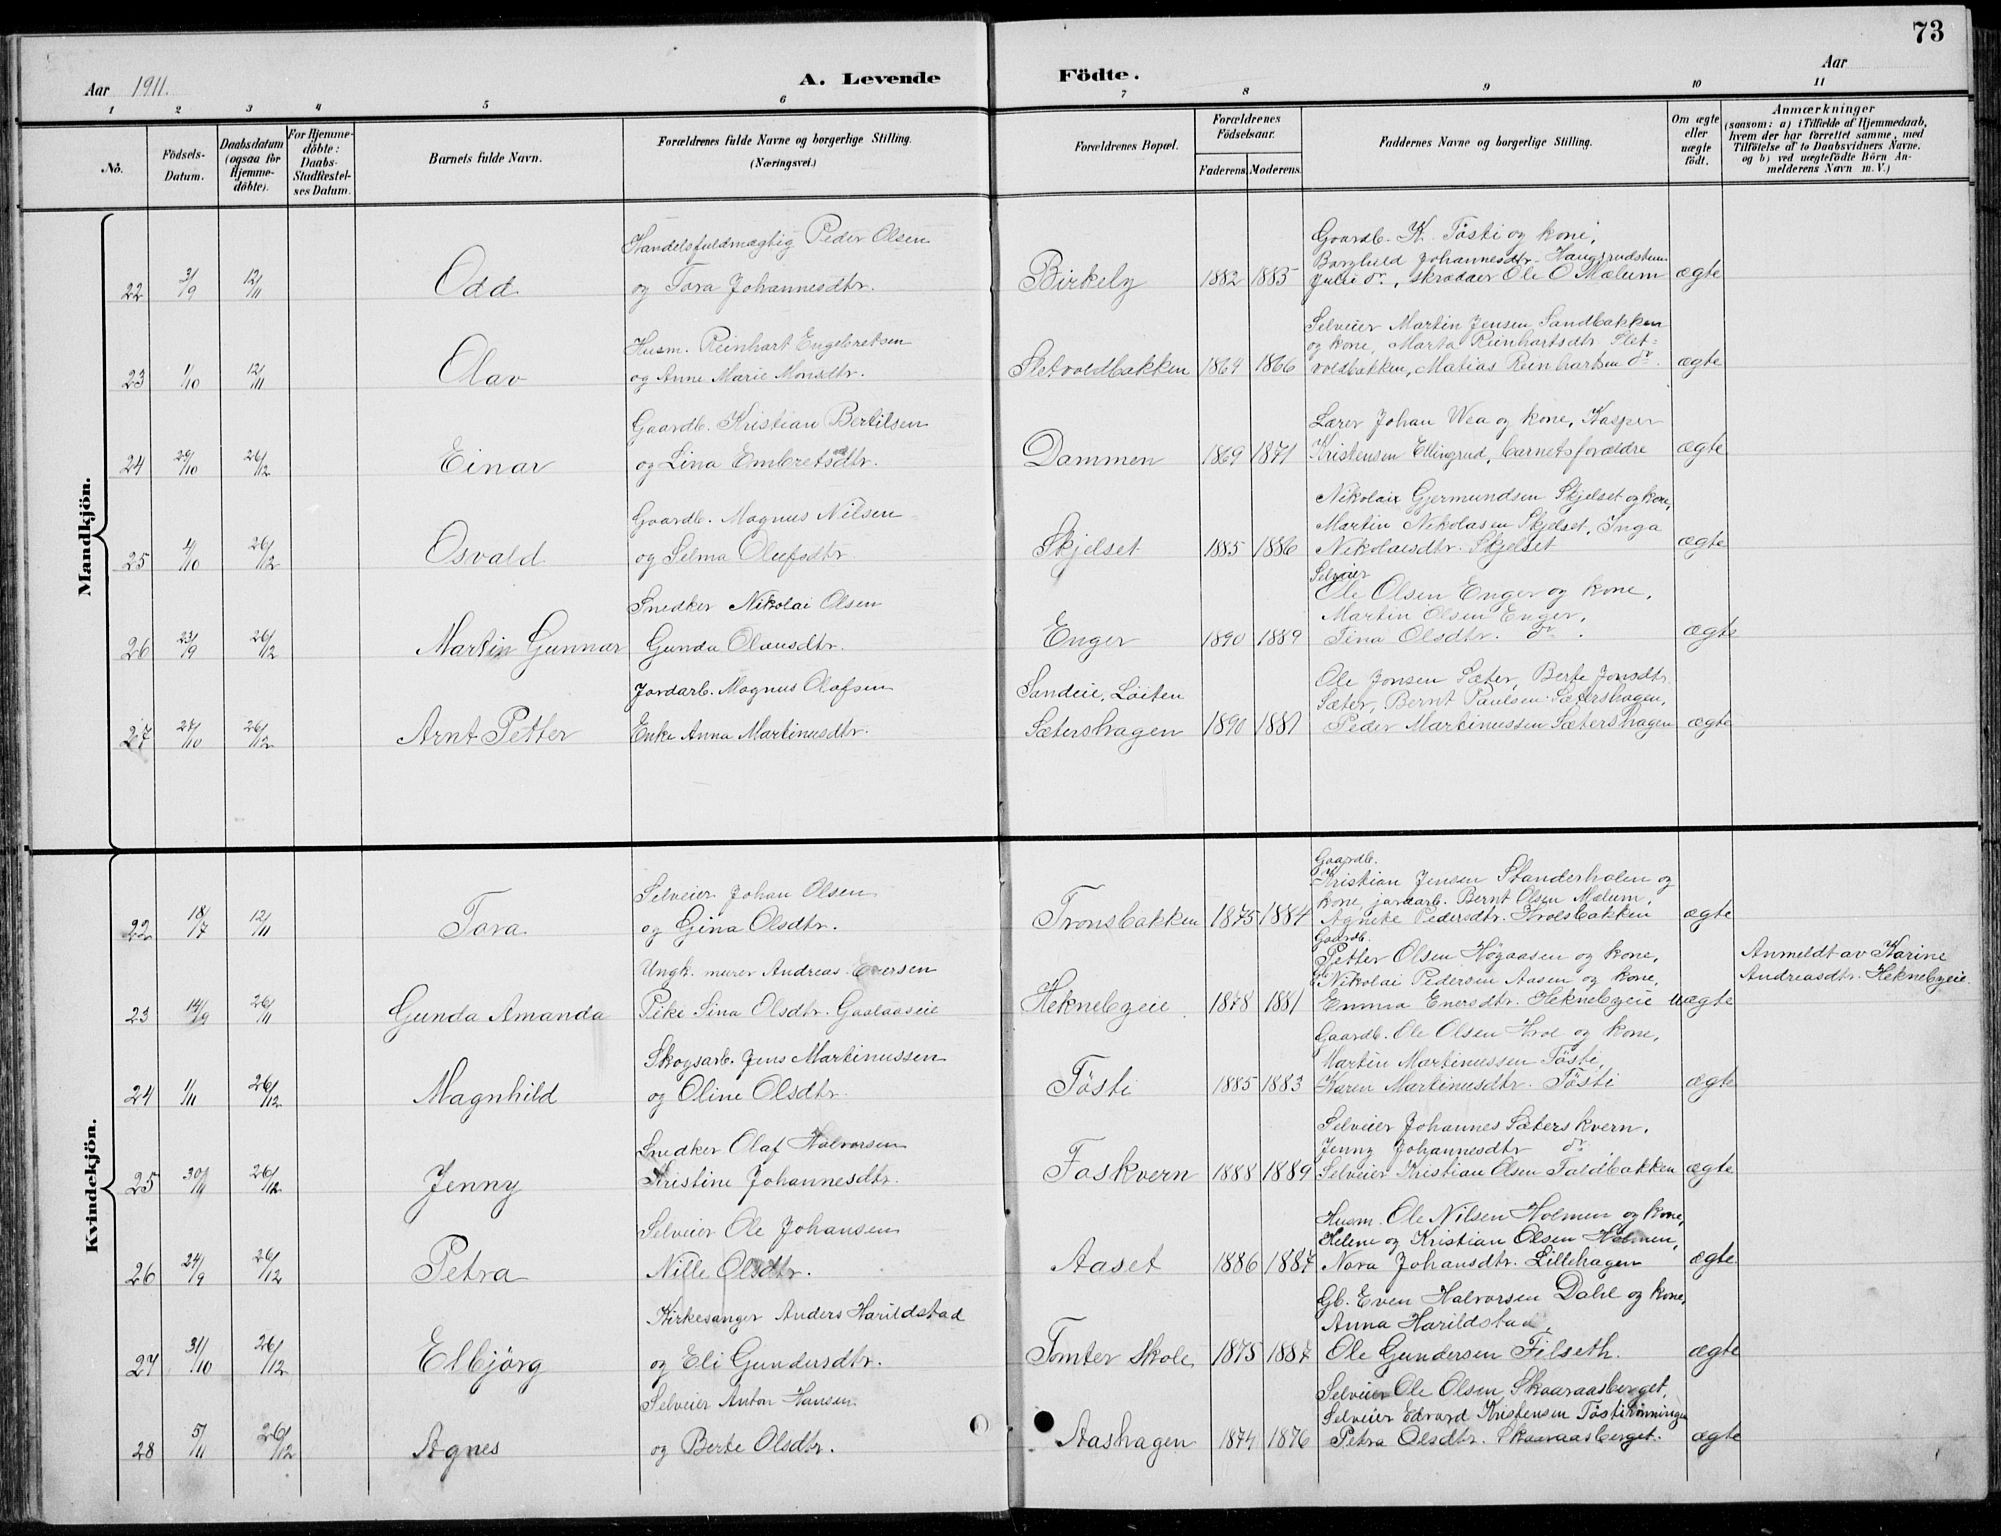 73
Aar 1911.
A. Levende Födte.
Aar
1 2 3 4 5 6 7 8 9 10 11
No.
Födsels-Datum.
Daabsdatum (ogsaa for Hjemme-döbte).
For Hjemme-döbte: Daabs-Stadfestel-ses Datum.
Barnets fulde Navn.
Forældrenes fulde Navne og borgerlige Stilling. (Næringsvei.)
Forældrenes Bopæl.
Forældrenes Födselsaar.
Faderens. Moderens.
Faddernes Navne og borgerlige Stilling.
Om ægte eller uægte födt.
Anmærkninger
(saasom: a) i Tilfælde af Hjemmedaab, hvem der har forrettet samme, med Tilföielse af to Daabsvidners Navne. og b) ved uægtefödte Börn An-melderens Navn m. V.)
Mandkjön.
Handelsfuldmægtig Peder Olsen
Gaardb. K. Tösti og kone,
Borghild Johannesdtr. Haugsrudstuen
22 3/9 12/11 Odd og Tora Johannesdtr. Birkely 1882 1885 Julie do, skrædder Ole O Mælum ægte
Husm. Reinhart Engebretsen
Selveier Martin Jensen Sandbakken
og kone, Marta Reinhartsdtr Slet-
23 1/10 12/11 Olav og Anne Marie Monsdtr. Sletvoldbakken 1864 1866 voldbakken, Matias Reinhartsen do. ægte
Gaardb. Kristian Bertilsen
Lærer Johan Wea og kone, Kasper
24 29/10 26/12 Einar og Lina Embretsdtr. Dammen 1869 1871 Kristensen Ellingrud, barnets forældre ægte
Gaardb. Magnus Nilsen
Nikolai Gjermundsen Skjelset og kone,
Martin Nikolasen Skjelset, Inga
25 4/10 26/12 Osvald og Selma Olufsdtr. Skjelset 1885 1886 Nikolaisdtr. Skjelset ægte
Selveier
Snedker Nikolai Olsen
Ole Olsen Enger og kone,
Martin Olsen Enger,
26 23/9 26/12 Martin Gunnar Gunda Olausdtr. Enger 1890 1889 Tina Olsdtr. do. ægte
Jordarb. Magnus Olafsen
Sandeie, Löiten
Ole Jonsen Sæter, Berte Jonsdtr.
Sæter, Bernt Paulsen Sætershagen,
27 27/10 26/12 Arnt Petter Enke Anna Martinusdtr. Sætershagen 1890 1881 Peder Martinussen Sætershagen ægte
Kvindekjön.
Gaardb.
Selveier Johan Olsen
Kristian Jensen Standerholen og
kone, jordarb. Bernt Olsen Mælum,
22 18/7 12/11 Tora og Gina Olsdtr. Tronsbakken 1875 1884 Agnete Pedersdtr. Krolsbakken ægte
Gaardb.
Ungk. murer Andreas Eversen
Petter Olsen Høgaasen og kone,
Gb. Nikolai Pedersen Aasen og kone,
Anmeldt av Karine
Andreasdtr. Heknebyeie.
23 14/9 26/11 Gunda Amanda Pike Sina Olsdtr. Gaalaaseie Heknebyeie 1878 1881 Emma Enersdtr. Heknebyeie uægte
Skogsarb. Jens Martinussen
Gaardb. Ole Olsen Krol og kone,
Martin Martinussen Tösti,
24 1/11 26/12 Magnhild og Oline Olsdtr. Tösti 1885 1883 Karen Martinusdtr. Tösti ægte
Snedker Olaf Halvorsen
Selveier Johannes Sæterskvern,
Jenny Johannesdtr do
25 30/11 26/12 Jenny Kristine Johannesdtr. Faskvern 1888 1889 Selveier Kristian Olsen Faldbakken ægte
Selveier Ole Johansen
Husm. Ole Nilsen Holmen og kone,
Helene og Kristian Olsen Holmen,
26 24/9 26/12 Petra Nille Olsdtr. Aaset 1886 1887 Nora Johansdtr. Lillehagen ægte
Kirkesanger Anders Harildstad
Gb. Even Halvorsen Dahl og kone,
Anna Harildstad,
27 31/10 26/12 Elbjörg og Eli Gundersdtr. Tomter Skole 1875 1887 Ole Gundersen Filseth. ægte
Selveier Anton Hansen
Selveier Ole Olsen Skaaraasberget,
Selveier Edvard Kristensen Töstikönningen
28 5/11 26/12 Agnes og Berte Olsdtr. Aashagen 1874 1876 Petra Olsdtr. Skaaraasberget. ægte